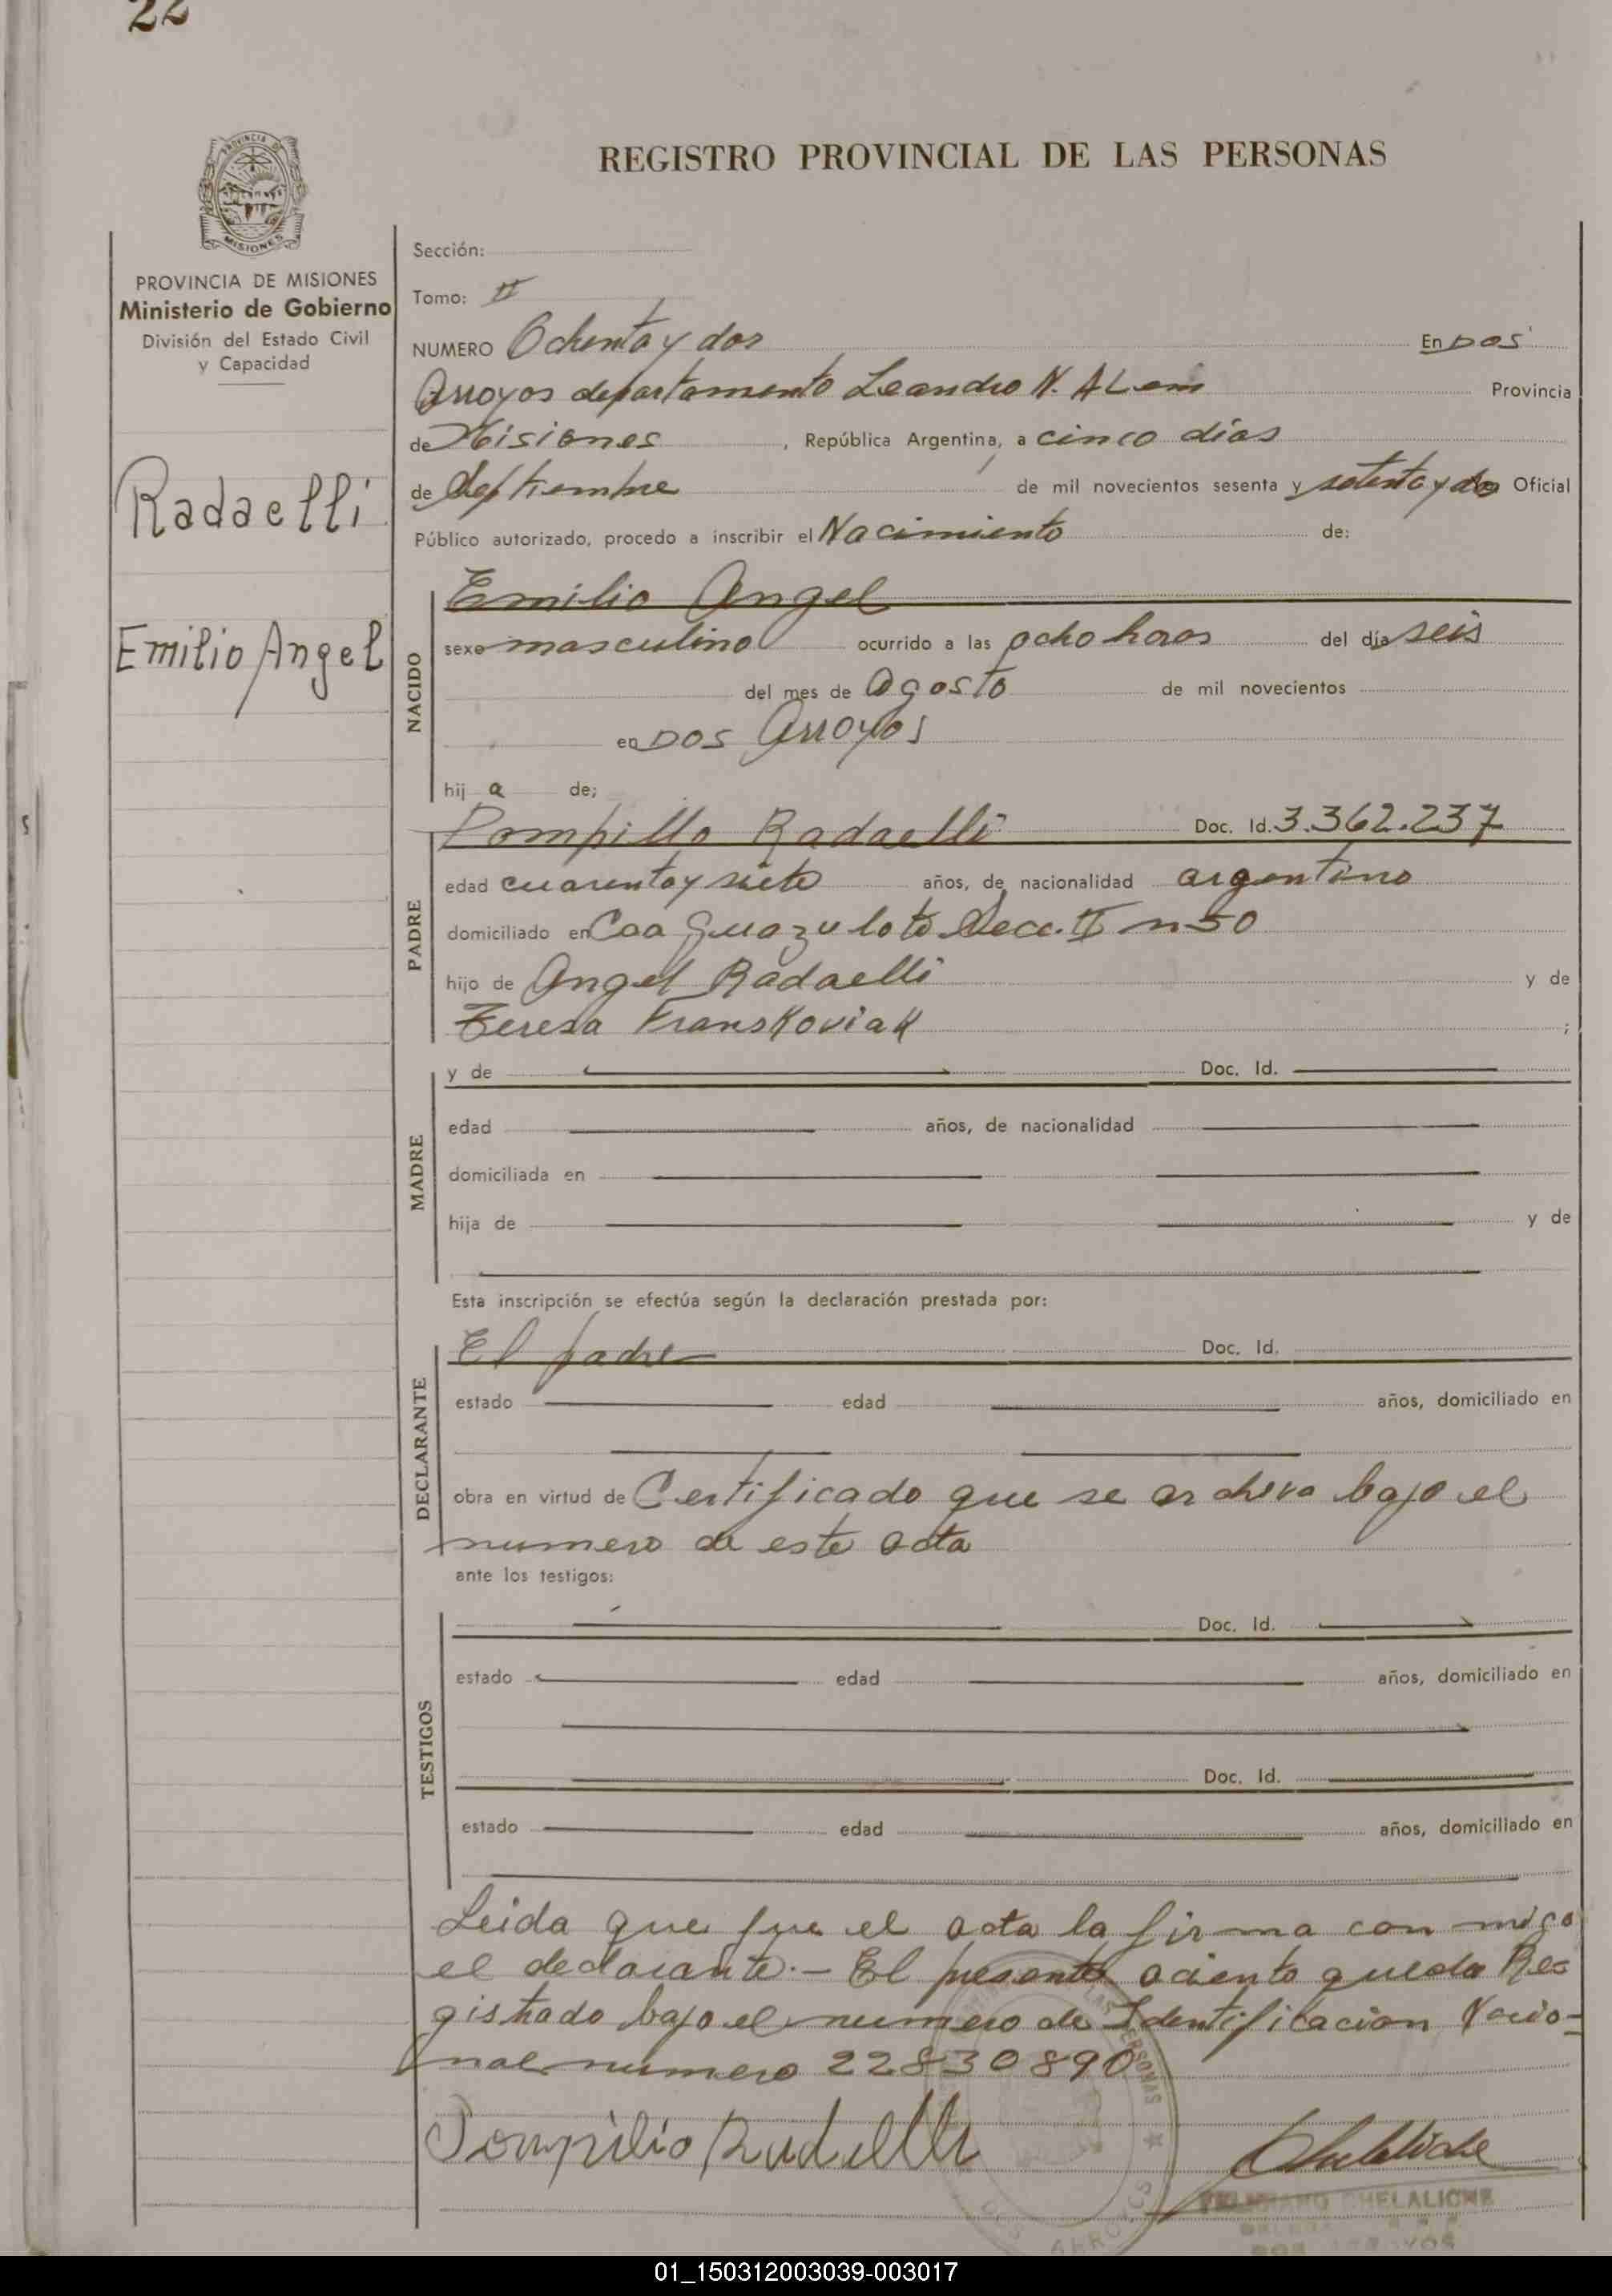 22
PROVINCIA DE
MISIONES
REGISTRO PROVINCIAL DE LAS PERSONAS
PROVINCIA DE MISIONES
Ministerio de Gobierno
División del Estado Civil
y Capacidad
Radaelli
Emilio Angel
Sección:
Tomo: II
NUMERO Ochenta y dos En DOS
Arroyos departamento Leandro N. ALem Provincia
de Misiones , República Argentina, a cinco días
de Septiembre de mil novecientos sesenta y setenta y dos Oficial
Público autorizado, procedo a inscribir el Nacimiento de:
NACIDO
Emilio Angel
sexo masculino ocurrido a las ocho horas del día seis
del mes de Agosto de mil novecientos
en DOS Arroyos
hij a de;
PADRE
Pompillo Radaelli Doc. Id. 3.362.237
edad cuarenta y siete años, de nacionalidad argentino
domiciliado en Caa Guazu lote Secc. II n 50
hijo de Angel Radaelli y de
Teresa Franskoviak ;
MADRE
y de Doc. Id.
edad años, de nacionalidad
domiciliada en
hija de y de
Esta inscripción se efectúa según la declaración prestada por:
DECLARANTE
El padre Doc. Id.
estado edad años, domiciliado en
obra en virtud de Certificado que se archiva bajo el
numero de este acta
ante los testigos:
TESTIGOS
Doc. Id.
estado edad años, domiciliado en
Doc. Id.
estado edad años, domiciliado en
Leida que fue el acta la firma con migo
el declarante.- El presente aciento queda Reg
gistrado bajo el numero de Identificacion Nacio-
nal numero 22830890
Pompilio Radaelli
CHELALICHE
DOS ARROYOS
01_150312003039-003017